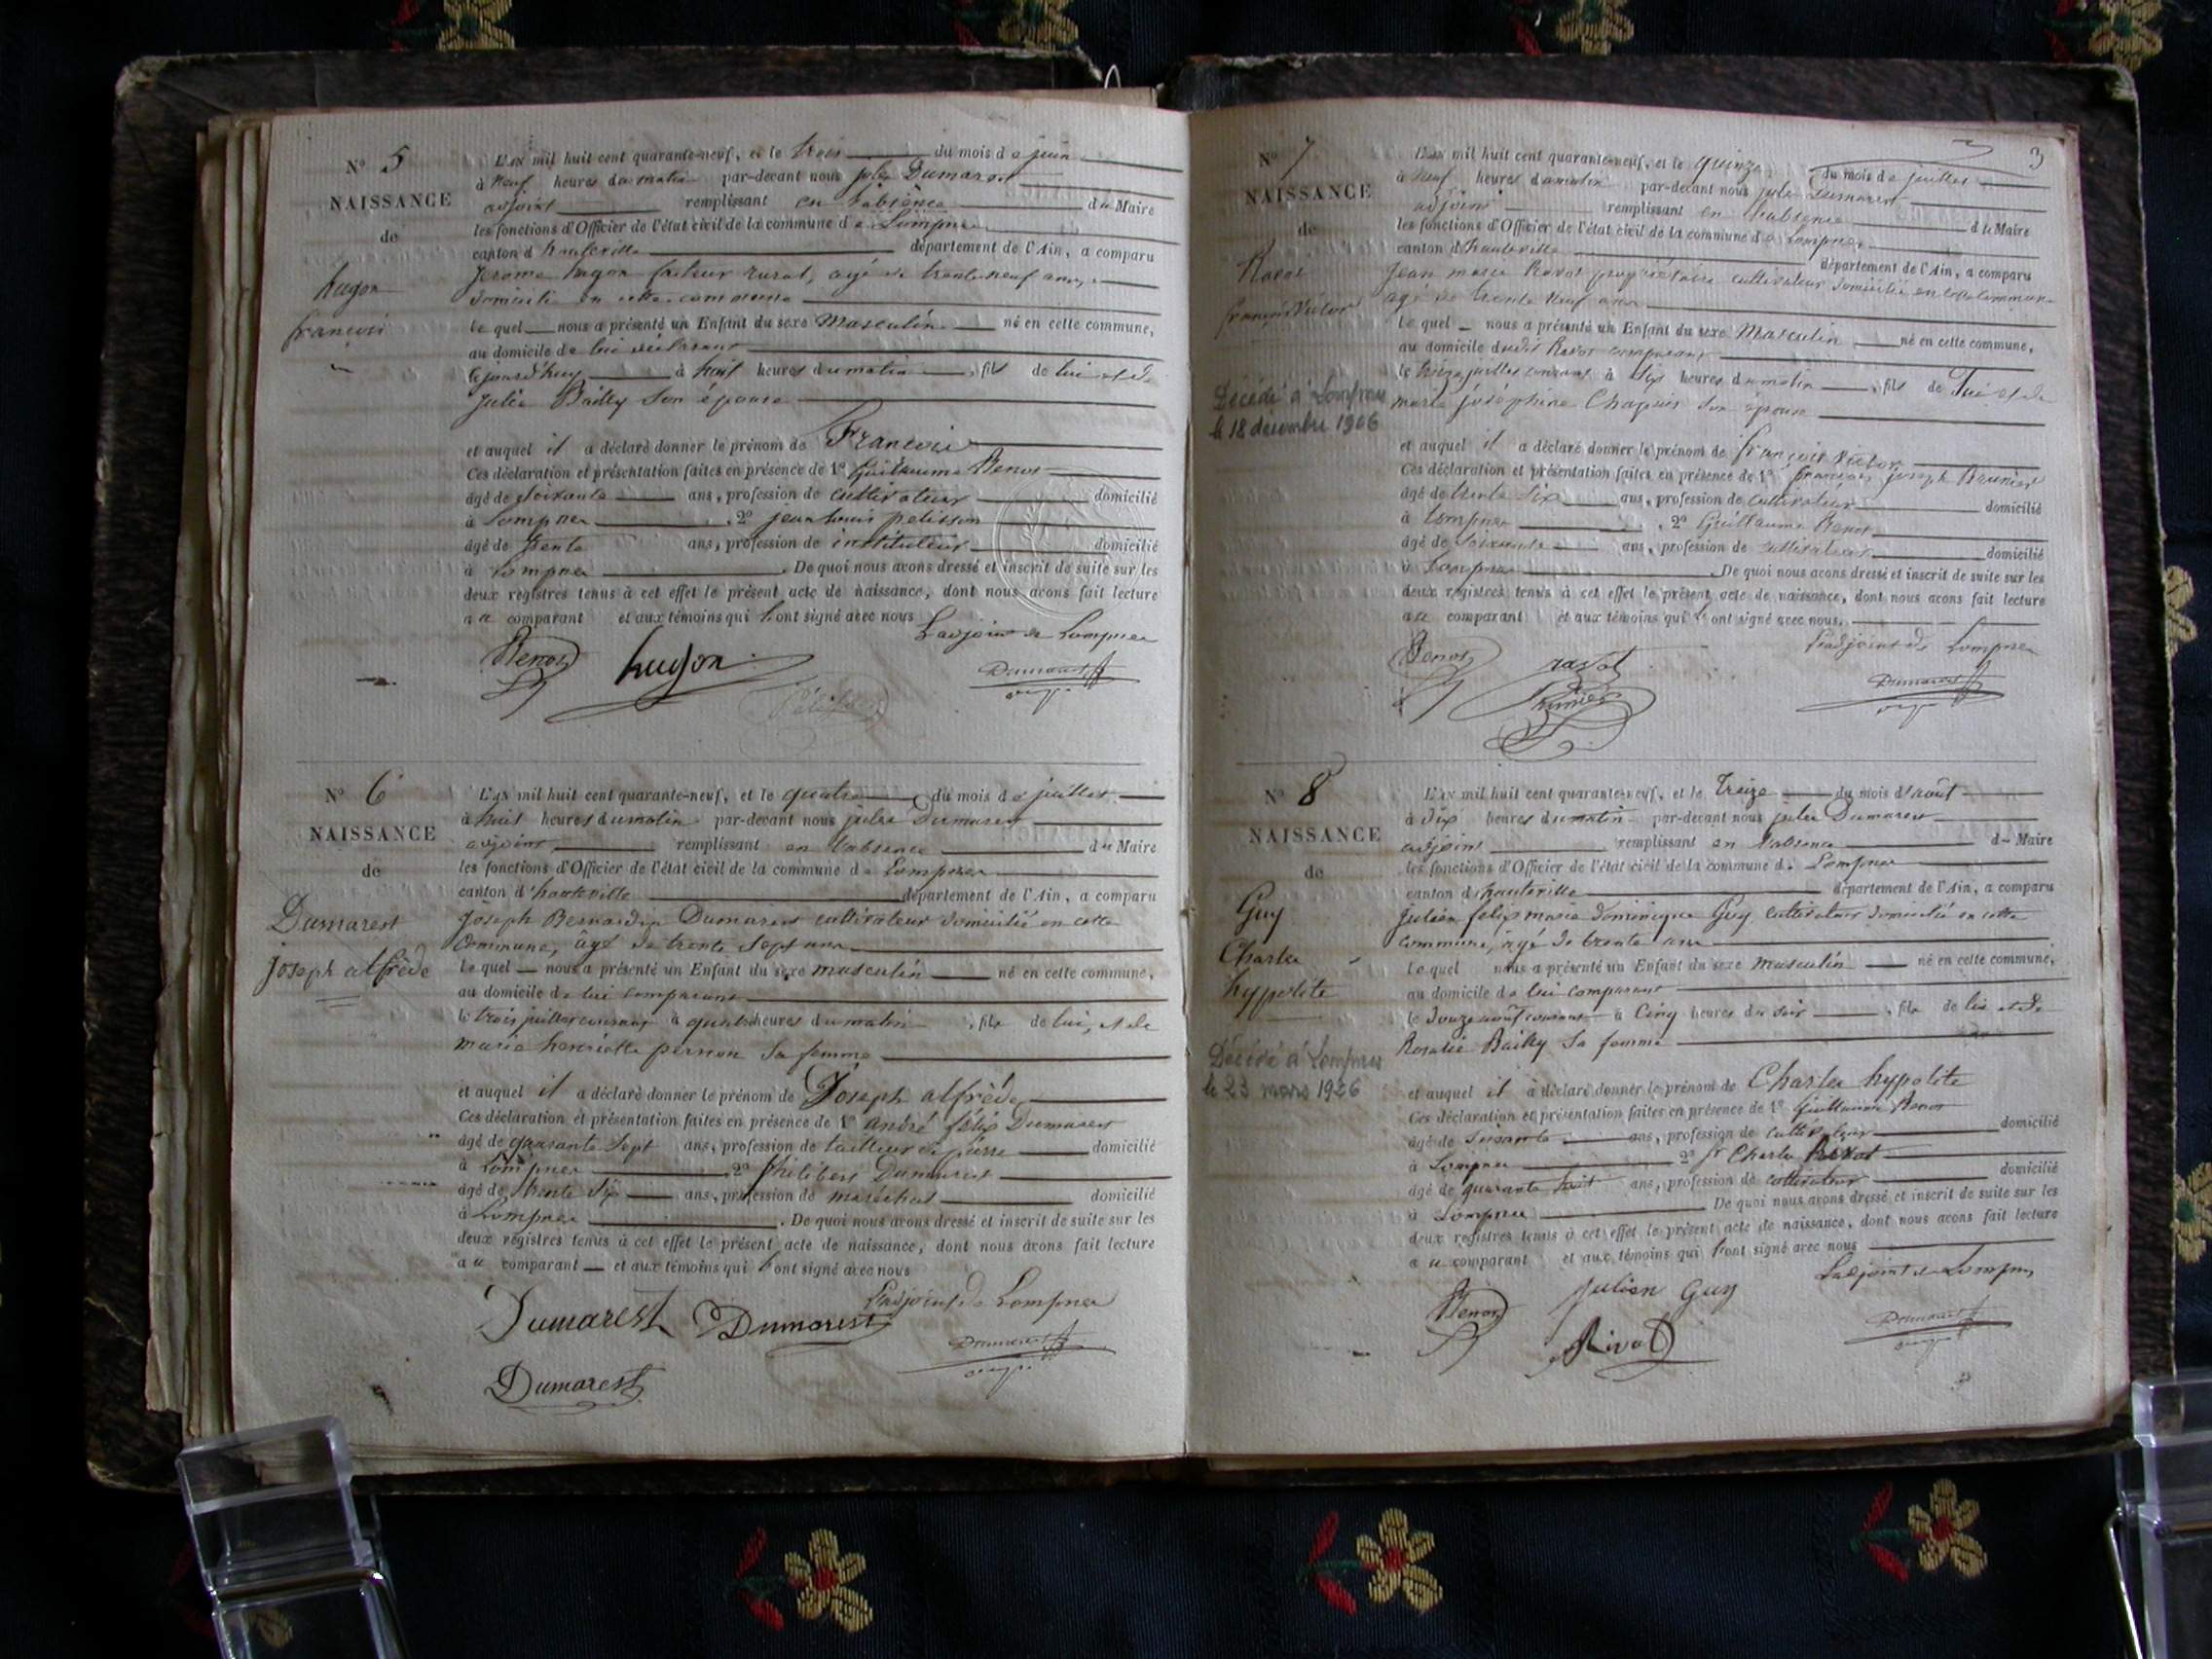 N° 5
NAISSANCE
de
hugon
françois
L'AN mil huit cent quarante-neuf, et le trois du mois de juin
à neuf heures du matin par-devant nous jules Dumarest
adjoint remplissant en l'absence du Maire
les fonctions d'Officier de l'état civil de la commune de Lompnes
canton d'hauteville département de l'Ain, a comparu
Jerome hugon facteur rural, agé de trente neuf ans,
domicilié en cette commune
lequel nous a présenté un Enfant du sexe Masculin né en cette commune,
au domicile de lui déclarant
aujourd'huy à huit heures du matin, fils de lui et de
julie Bailly son épouse
et auquel il a déclaré donner le prénom de François
Ces déclaration et présentation faites en présence de 1° Guillaume
âgé de soixante ans, profession de cultivateur domicilié
à Lompnes, 2° jean louis pelisson
âgé de trente ans, profession de instituteur domicilié
à Lompnes. De quoi nous avons dressé et inscrit de suite sur les
deux registres tenus à cet effet le présent acte de naissance, dont nous avons fait lecture
au comparant et aux témoins qui l'ont signé avec nous
L'adjoint de Lompnes
hugon
Dumarest
N° 6
NAISSANCE
de
Dumarest
joseph alfrède
L'AN mil huit cent quarante-neuf, et le quatre du mois de juillet
à huit heures du matin par-devant nous jules Dumarest
adjoint remplissant en l'absence du Maire
les fonctions d'Officier de l'état civil de la commune de Lompnes
canton d'hauteville département de l'Ain, a comparu
joseph Bernardin Dumarest cultivateur domicilié en cette
commune, âgé de trente sept ans
lequel nous a présenté un Enfant du sexe masculin né en cette commune,
au domicile de lui comparant
le trois juillet courant à quatre heures du matin, fils de lui, et de
marie henriette pernon sa femme
et auquel il a déclaré donner le prénom de Joseph alfrède
Ces déclaration et présentation faites en présence de 1° andré félix Dumarest
âgé de quarante sept ans, profession de tailleur de pierre domicilié
à Lompnes 2° philibert Dumarest
âgé de trente six ans, profession de marechal domicilié
à Lompnes. De quoi nous avons dressé et inscrit de suite sur les
deux registres tenus à cet effet le présent acte de naissance, dont nous avons fait lecture
au comparant et aux témoins qui l'ont signé avec nous
L'adjoint de Lompnes
Dumarest Dumarest Dumarest
Dumarest
3
N° 7
NAISSANCE
de
Ravot
françois Victor
Décédé à Lompnes
le 18 décembre 1906
L'AN mil huit cent quarante-neuf, et le quinze du mois de juillet
à neuf heures du matin par-devant nous jules Dumarest
adjoint remplissant en l'absence du Maire
les fonctions d'Officier de l'état civil de la commune de Lompnes
canton d'hauteville département de l'Ain, a comparu
Jean marie Ravot propriétaire cultivateur domicilié en cette commune
agé de trente neuf ans
lequel nous a présenté un Enfant du sexe Masculin né en cette commune,
au domicile dudit Ravot comparant
le treize juillet courant à six heures du matin, fils de lui et de
marie joséphine Chapuis son épouse
et auquel il a déclaré donner le prénom de françois victor
Ces déclaration et présentation faites en présence de 1° françois joseph Brunier
âgé de trente six ans, profession de cultivateur domicilié
à Lompnes, 2° Guillaume
âgé de soixante ans, profession de cultivateur domicilié
à Lompnes. De quoi nous avons dressé et inscrit de suite sur les
deux registres tenus à cet effet le présent acte de naissance, dont nous avons fait lecture
au comparant et aux témoins qui l'ont signé avec nous.
L'adjoint de Lompnes
ravot
Dumarest
N° 8
NAISSANCE
de
Guy
Charles
hypolite
Décédé à Lompnes
le 23 mars 1926
L'AN mil huit cent quarante-neuf, et le treize du mois d'août
à dix heures du matin par-devant nous jules Dumarest
adjoint remplissant en l'absence du Maire
les fonctions d'Officier de l'état civil de la commune de Lompnes
canton d'hauteville département de l'Ain, a comparu
julien felix marie dominique Guy cultivateur domicilié en cette
commune, agé de trente ans
lequel nous a présenté un Enfant du sexe masculin né en cette commune,
au domicile de lui comparant
le douze août courant à Cinq heures du soir, fils de lui et de
Rosalie Bailly sa femme
et auquel il a déclaré donner le prénom de Charles hypolite
Ces déclaration et présentation faites en présence de 1° Guillaume
âgé de soixante ans, profession de cultivateur domicilié
à Lompnes 2° Charles
âgé de quarante huit ans, profession de cultivateur domicilié
à Lompnes De quoi nous avons dressé et inscrit de suite sur les
deux registres tenus à cet effet le présent acte de naissance, dont nous avons fait lecture
au comparant et aux témoins qui l'ont signé avec nous
L'adjoint de Lompnes
julien Guy
Rivat
Dumarest